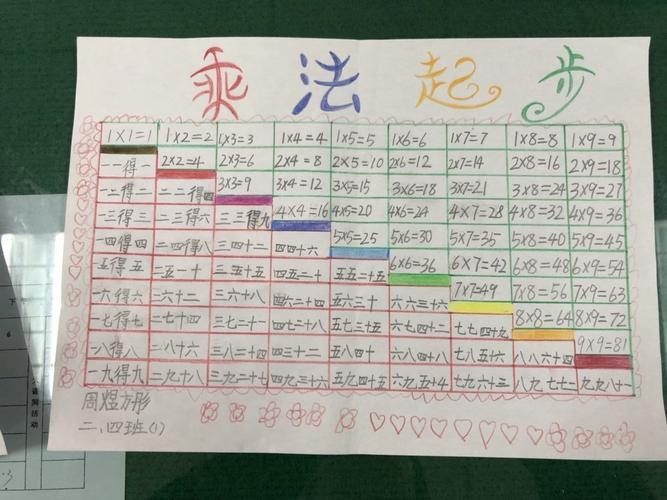 乘法起步
1×1=1 1×2=2 1×3=3 1×4=4 1×5=5 1×6=6 1×7=7 1×8=8 1×9=9
一一得一 2×2=4 2×3=6 2×4=8 2×5=10 2×6=12 2×7=14 2×8=16 2×9=18
一二得二 二二得四 3×3=9 3×4=12 3×5=15 3×6=18 3×7=21 3×8=24 3×9=27
一三得三 二三得六 三三得九 4×4=16 4×5=20 4×6=24 4×7=28 4×8=32 4×9=36
一四得四 二四得八 三四十二 四四十六 5×5=25 5×6=30 5×7=35 5×8=40 5×9=45
一五得五 二五一十 三五十五 四五二十 五五二十五 6×6=36 6×7=42 6×8=48 6×9=54
一六得六 二六十二 三六十八 四六二十四 五六三十 六六三十六 7×7=49 7×8=56 7×9=63
一七得七 二七十四 三七二十一 四七二十八 五七三十五 六七四十二 七七四十九 8×8=64 8×9=72
一八得八 二八十六 三八二十四 四八三十二 五八四十 六八四十八 七八五十六 八八六十四 9×9=81
一九得九 二九十八 三九二十七 四九三十六 五九四十五 六九五十四 七九六十三 八九七十二 九九八十一
周煜方彤
二、四班(1)